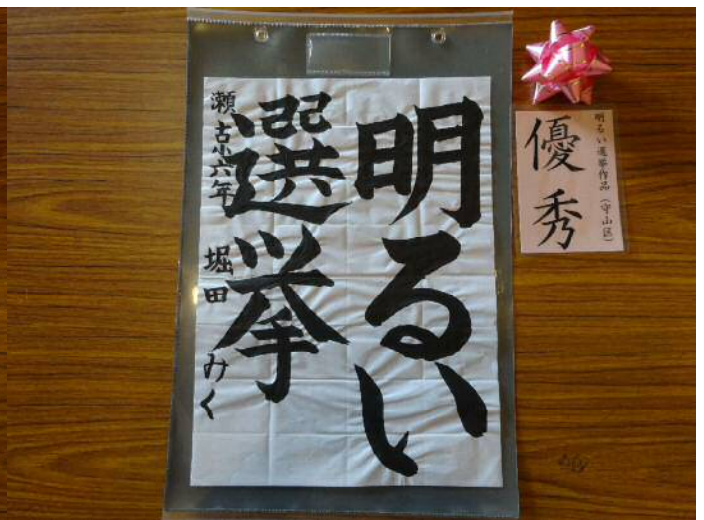 明るい
選挙
瀬古小六年 堀田 みく
明るい選挙作品（守山区）
優秀